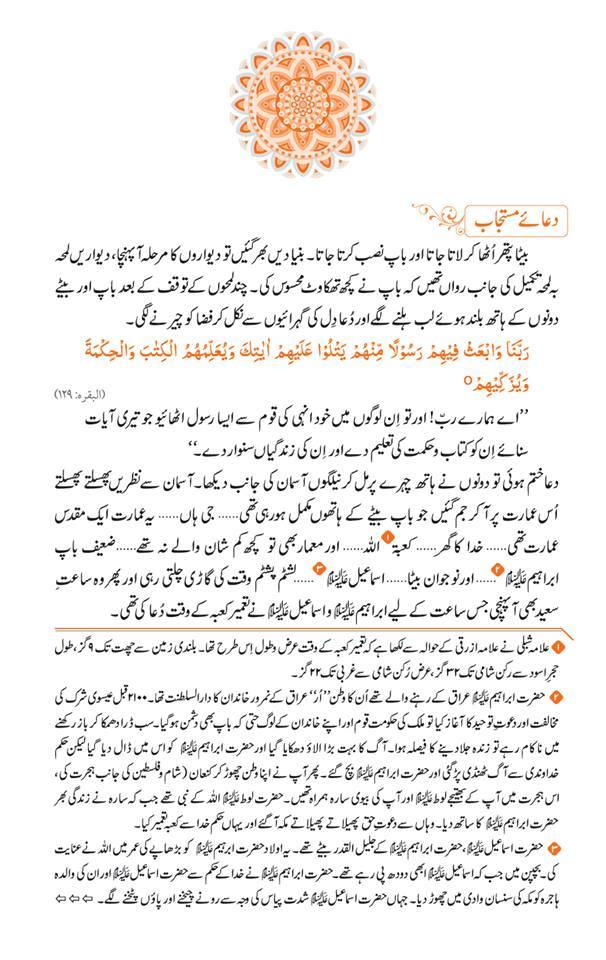 دعائے مستجاب
بیٹا پتھر اُٹھا کر لاتا جاتا اور باپ نصب کرتا جاتا۔ بنیادیں بھر گئیں تو دیواروں کا مرحلہ آ پہنچا، دیواریں لمحہ
بہ لمحہ تکمیل کی جانب رواں تھیں کہ باپ نے کچھ تھکاوٹ محسوس کی۔ چند لمحوں کے توقف کے بعد باپ اور بیٹے
دونوں کے ہاتھ بلند ہوئے لب ہلنے لگے اور دُعا دِل کی گہرائیوں سے نکل کر فضا کو چیرنے لگی۔
رَبَّنَا وَابْعَثْ فِيْهِمْ رَسُوْلًا مِّنْهُمْ يَتْلُوْا عَلَيْهِمْ اٰيٰتِكَ وَيُعَلِّمُهُمُ الْكِتٰبَ وَالْحِكْمَةَ
وَيُزَكِّيْهِمْ ۝
(البقرہ: ۱۲۹)
’’اے ہمارے ربّ! اور تو اِن لوگوں میں خود انہی کی قوم سے ایسا رسول اٹھائیو جو تیری آیات
سنائے اِن کو کتاب و حکمت کی تعلیم دے اور اِن کی زندگیاں سنوار دے۔‘‘
دعا ختم ہوئی تو دونوں نے ہاتھ چہرے پر مل کر نیلگوں آسمان کی جانب دیکھا۔ آسمان سے نظریں پھسلتے پھسلتے
اُس عمارت پر آ کر جم گئیں جو باپ بیٹے کے ہاتھوں مکمل ہو رہی تھی…… جی ہاں…… یہ عمارت ایک مقدس
عمارت تھی…… خدا کا گھر…… کعبۃ۱ اللہ…… اور معمار بھی تو کچھ کم شان والے نہ تھے…… ضعیف باپ
ابراہیم علیہ السلام۲…… اور نوجوان بیٹا…… اسماعیل علیہ السلام۳…… لشٹم پشٹم وقت کی گاڑی چلتی رہی اور پھر وہ ساعتِ
سعید بھی آ پہنچی جس ساعت کے لیے ابراہیم علیہ السلام و اسماعیل علیہ السلام نے تعمیر کعبہ کے وقت دُعا کی تھی۔
۱ علامہ شبلی نے علامہ ازرقی کے حوالہ سے لکھا ہے کہ تعمیر کعبہ کے وقت عرض و طول اِس طرح تھا۔ بلندی زمین سے چھت تک ۹ گز، طول
حجر اسود سے رکن شامی تک ۳۲ گز، عرض رُکن شامی سے غربی تک ۲۲ گز۔
۲ حضرت ابراہیم علیہ السلام عراق کے رہنے والے تھے اُن کا وطن ’’اُر‘‘ عراق کے نمرود خاندان کا دار السلطنت تھا۔ ۲۱۰۰ قبل عیسوی شرک کی
مخالفت اور دعوتِ توحید کا آغاز کیا تو ملک کی حکومت قوم اور اپنے خاندان کے لوگ حتیٰ کہ باپ بھی دشمن ہو گیا۔ سب ڈرا دھمکا کر باز رکھنے
میں ناکام رہے تو زندہ جلا دینے کا فیصلہ ہوا۔ آگ کا بہت بڑا الاؤ دھکایا گیا اور حضرت ابراہیم علیہ السلام کو اس میں ڈال دیا گیا لیکن حکم
خداوندی سے آگ ٹھنڈی پڑ گئی اور حضرت ابراہیم علیہ السلام بچ گئے۔ پھر آپ نے اپنا وطن چھوڑ کر کنعان (شام و فلسطین کی جانب ہجرت کی،
اس ہجرت میں آپ کے بھتیجے لوط علیہ السلام اور آپ کی بیوی سارہ ہمراہ تھیں۔ حضرت لوط علیہ السلام اللہ کے نبی تھے جب کہ سارہ نے زندگی بھر
حضرت ابراہیم علیہ السلام کا ساتھ دیا۔ وہاں سے دعوتِ حق پھیلاتے پھیلاتے مکہ آ گئے اور یہاں حکم خدا سے کعبہ تعمیر کیا۔
۳ حضرت اسماعیل علیہ السلام، حضرت ابراہیم علیہ السلام کے جلیل القدر بیٹے تھے۔ یہ اولاد حضرت ابراہیم علیہ السلام کو بڑھاپے کی عمر میں اللہ نے عنایت
کی۔ بچپن میں جب کہ اسماعیل علیہ السلام ابھی دودھ پی رہے تھے۔ حضرت ابراہیم علیہ السلام نے خدا کے حکم سے حضرت اسماعیل علیہ السلام اور ان کی والدہ
ہاجرہ کو مکہ کی سنسان وادی میں چھوڑ دیا۔ جہاں حضرت اسماعیل علیہ السلام شدت پیاس کی وجہ سے رونے چیخنے اور پاؤں پٹخنے لگے۔ ⇦ ⇦ ⇦